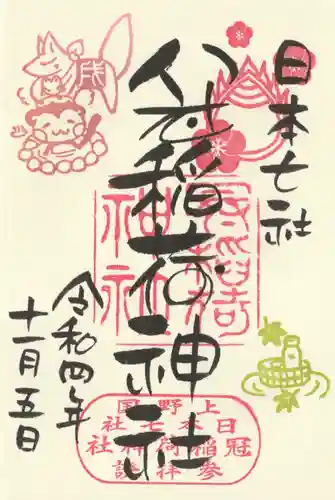 日本七社
冠稲荷神社
令和四年
十一月五日
成
上野国
日本七社
冠稲荷神社
参拝証